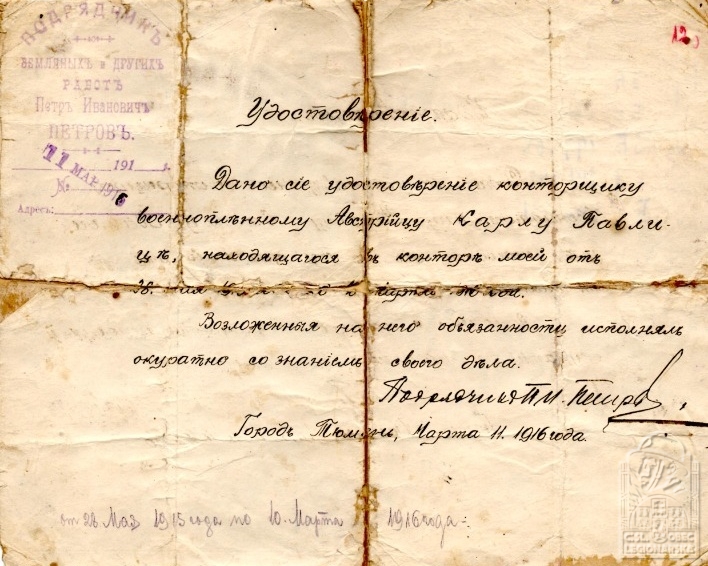 ПОДРЯДЧИКЪ
ЗЕМЛЯНЫХЪ и ДРУГИХЪ
РАБОТЪ
Петръ Ивановичъ
ПЕТРОВЪ.
191 г.
11 МАР 1916
№
Адресъ:
12
Удостовѣреніе.
Дано сіе удостовѣреніе конторщику
военноплѣнному Австрійцу Карлу Павли-
цѣ, находящагося въ конторѣ моей отъ
28. марта
Возложенныя на него обязанности исполнялъ
окуратно со знаніемъ своего дѣла.
Подрядчикъ П. И. Петровъ
Городъ Тюмень, Марта 11. 1916 года.
от 28 Маз 1915 года по 10. Марта 1916 года.
ČSL. OBEC
LEGIONÁŘSKÁ